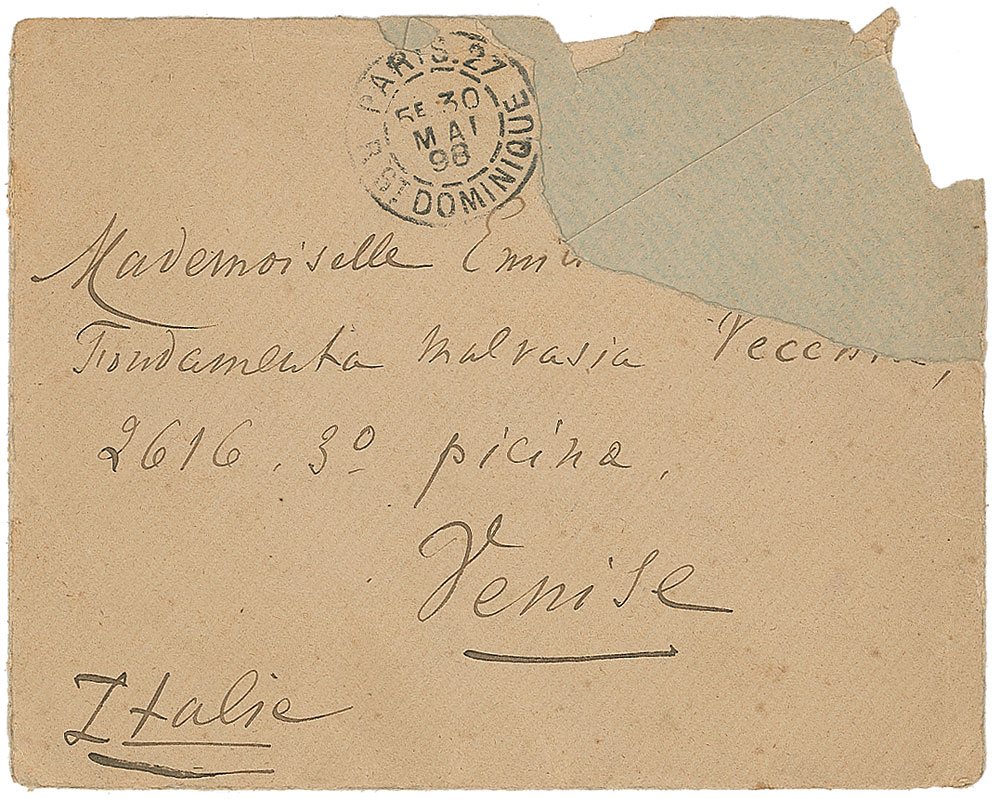 PARIS. 27
5E 30
MAI
98
R. ST DOMINIQUE
Mademoiselle
Fondamenta Malvasia
2616. 3º picina,
Venise
Italie